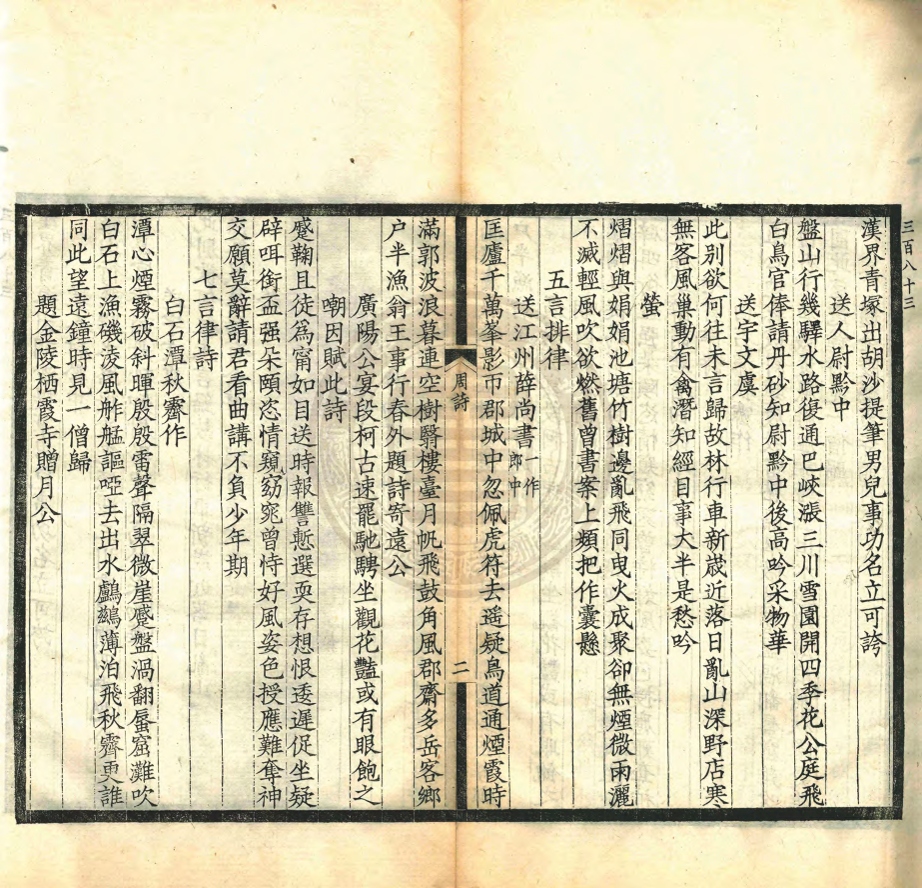 三百八十三
漢界青塚出胡沙提筆男兒事功名立可誇
送人尉黔中
盤山行幾驛水路復通巴峽漲三川雪園開四季花公庭飛
白鳥官俸請丹砂知尉黔中後高吟采物華
送宇文虞
此別欲何往未言歸故林行車新歲近落日亂山深野店寒
無客風巢動有禽潛知經目事大半是愁吟
螢
熠熠與娟娟池塘竹樹邊亂飛同曳火成聚卻無煙微雨灑
不滅輕風吹欲燃舊曾書案上頻把作囊懸
五言排律
送江州薛尚書一作郎中
匡廬千萬峯影帀郡城中忽佩虎符去遥疑鳥道通煙霞時
周詩
二
滿郭波浪暮連空樹翳樓臺月帆飛鼓角風郡齋多岳客鄉
户半漁翁王事行春外題詩寄遠公
廣陽公宴段柯古速罷馳騁坐觀花豔或有眼飽之
嘲因賦此詩
蹙鞠且徒爲甯如目送時報讐慙選耎存想恨逶遲促坐疑
辟咡銜盃强朵頤恣情窺窈窕曾恃好風姿色授應難奪神
交願莫辭請君看曲講不負少年期
七言律詩
白石潭秋霽作
潭心煙霧破斜暉殷殷雷聲隔翠微崖蹙盤渦翻蜃窟灘吹
白石上漁磯淩風舴艋謳啞去出水鸕鷀薄泊飛秋霽更誰
同此望遠鐘時見一僧歸
題金陵栖霞寺贈月公